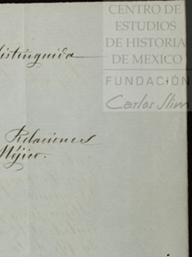 CENTRO DE
ESTUDIOS
DE HISTORIA
DE MEXICO
FUNDACIÓN
Carlos Slim
distinguida
Relaciones
Méjico.